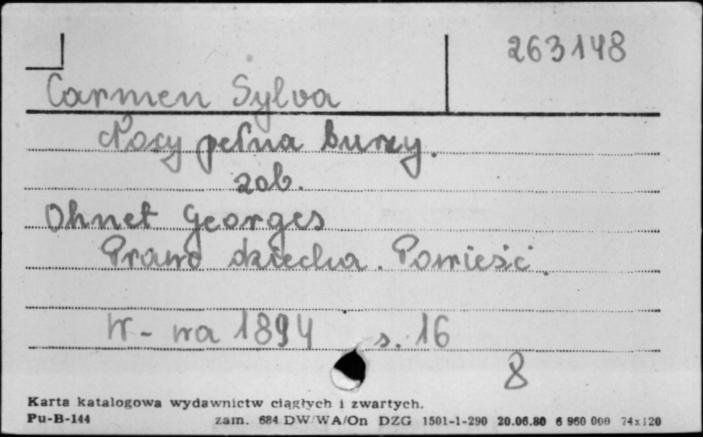 263148
Carmen Sylva
Nocy pełna burzy.
zob.
Ohnet Georges
Prawo dziecka. Powieść.
W-wa 1894 s. 16
8
Karta katalogowa wydawnictw ciągłych i zwartych.
Pu-B-144 zam. 684 DW/WA/On DZG 1501-1-290 20.06.80 6 960 000 74x120